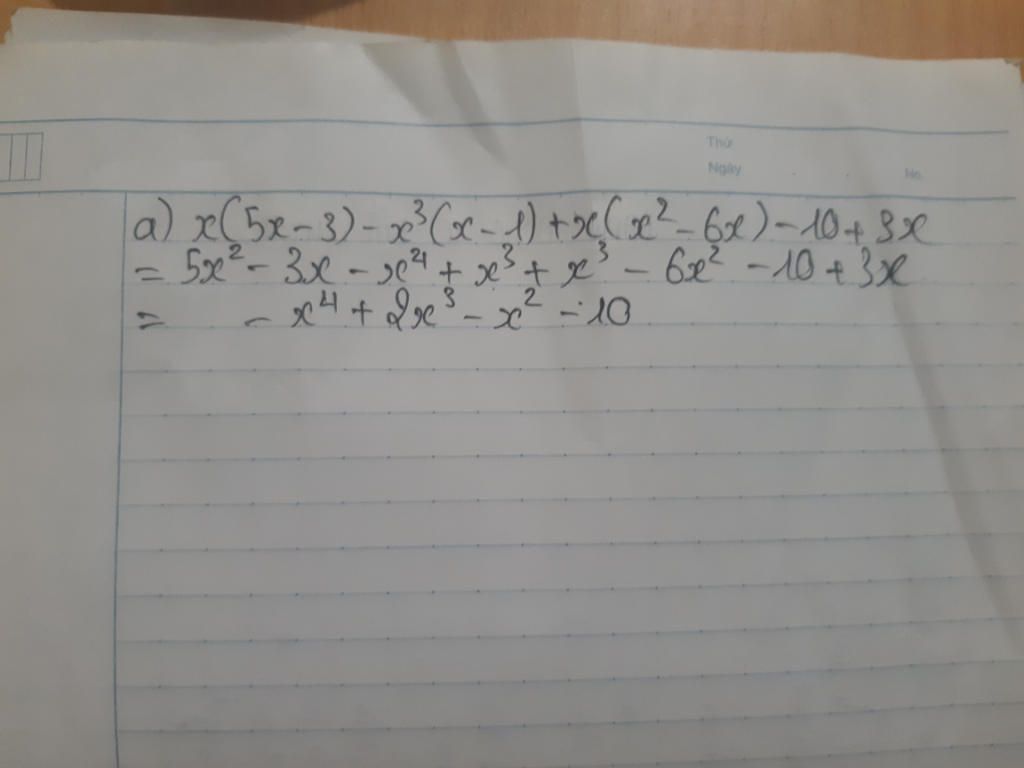 Thứ
Ngày . . No.
a) x(5x-3) - x³(x-1) + x(x² - 6x) - 10 + 3x
= 5x² - 3x - x⁴ + x³ + x³ - 6x² - 10 + 3x
= - x⁴ + 2x³ - x² - 10